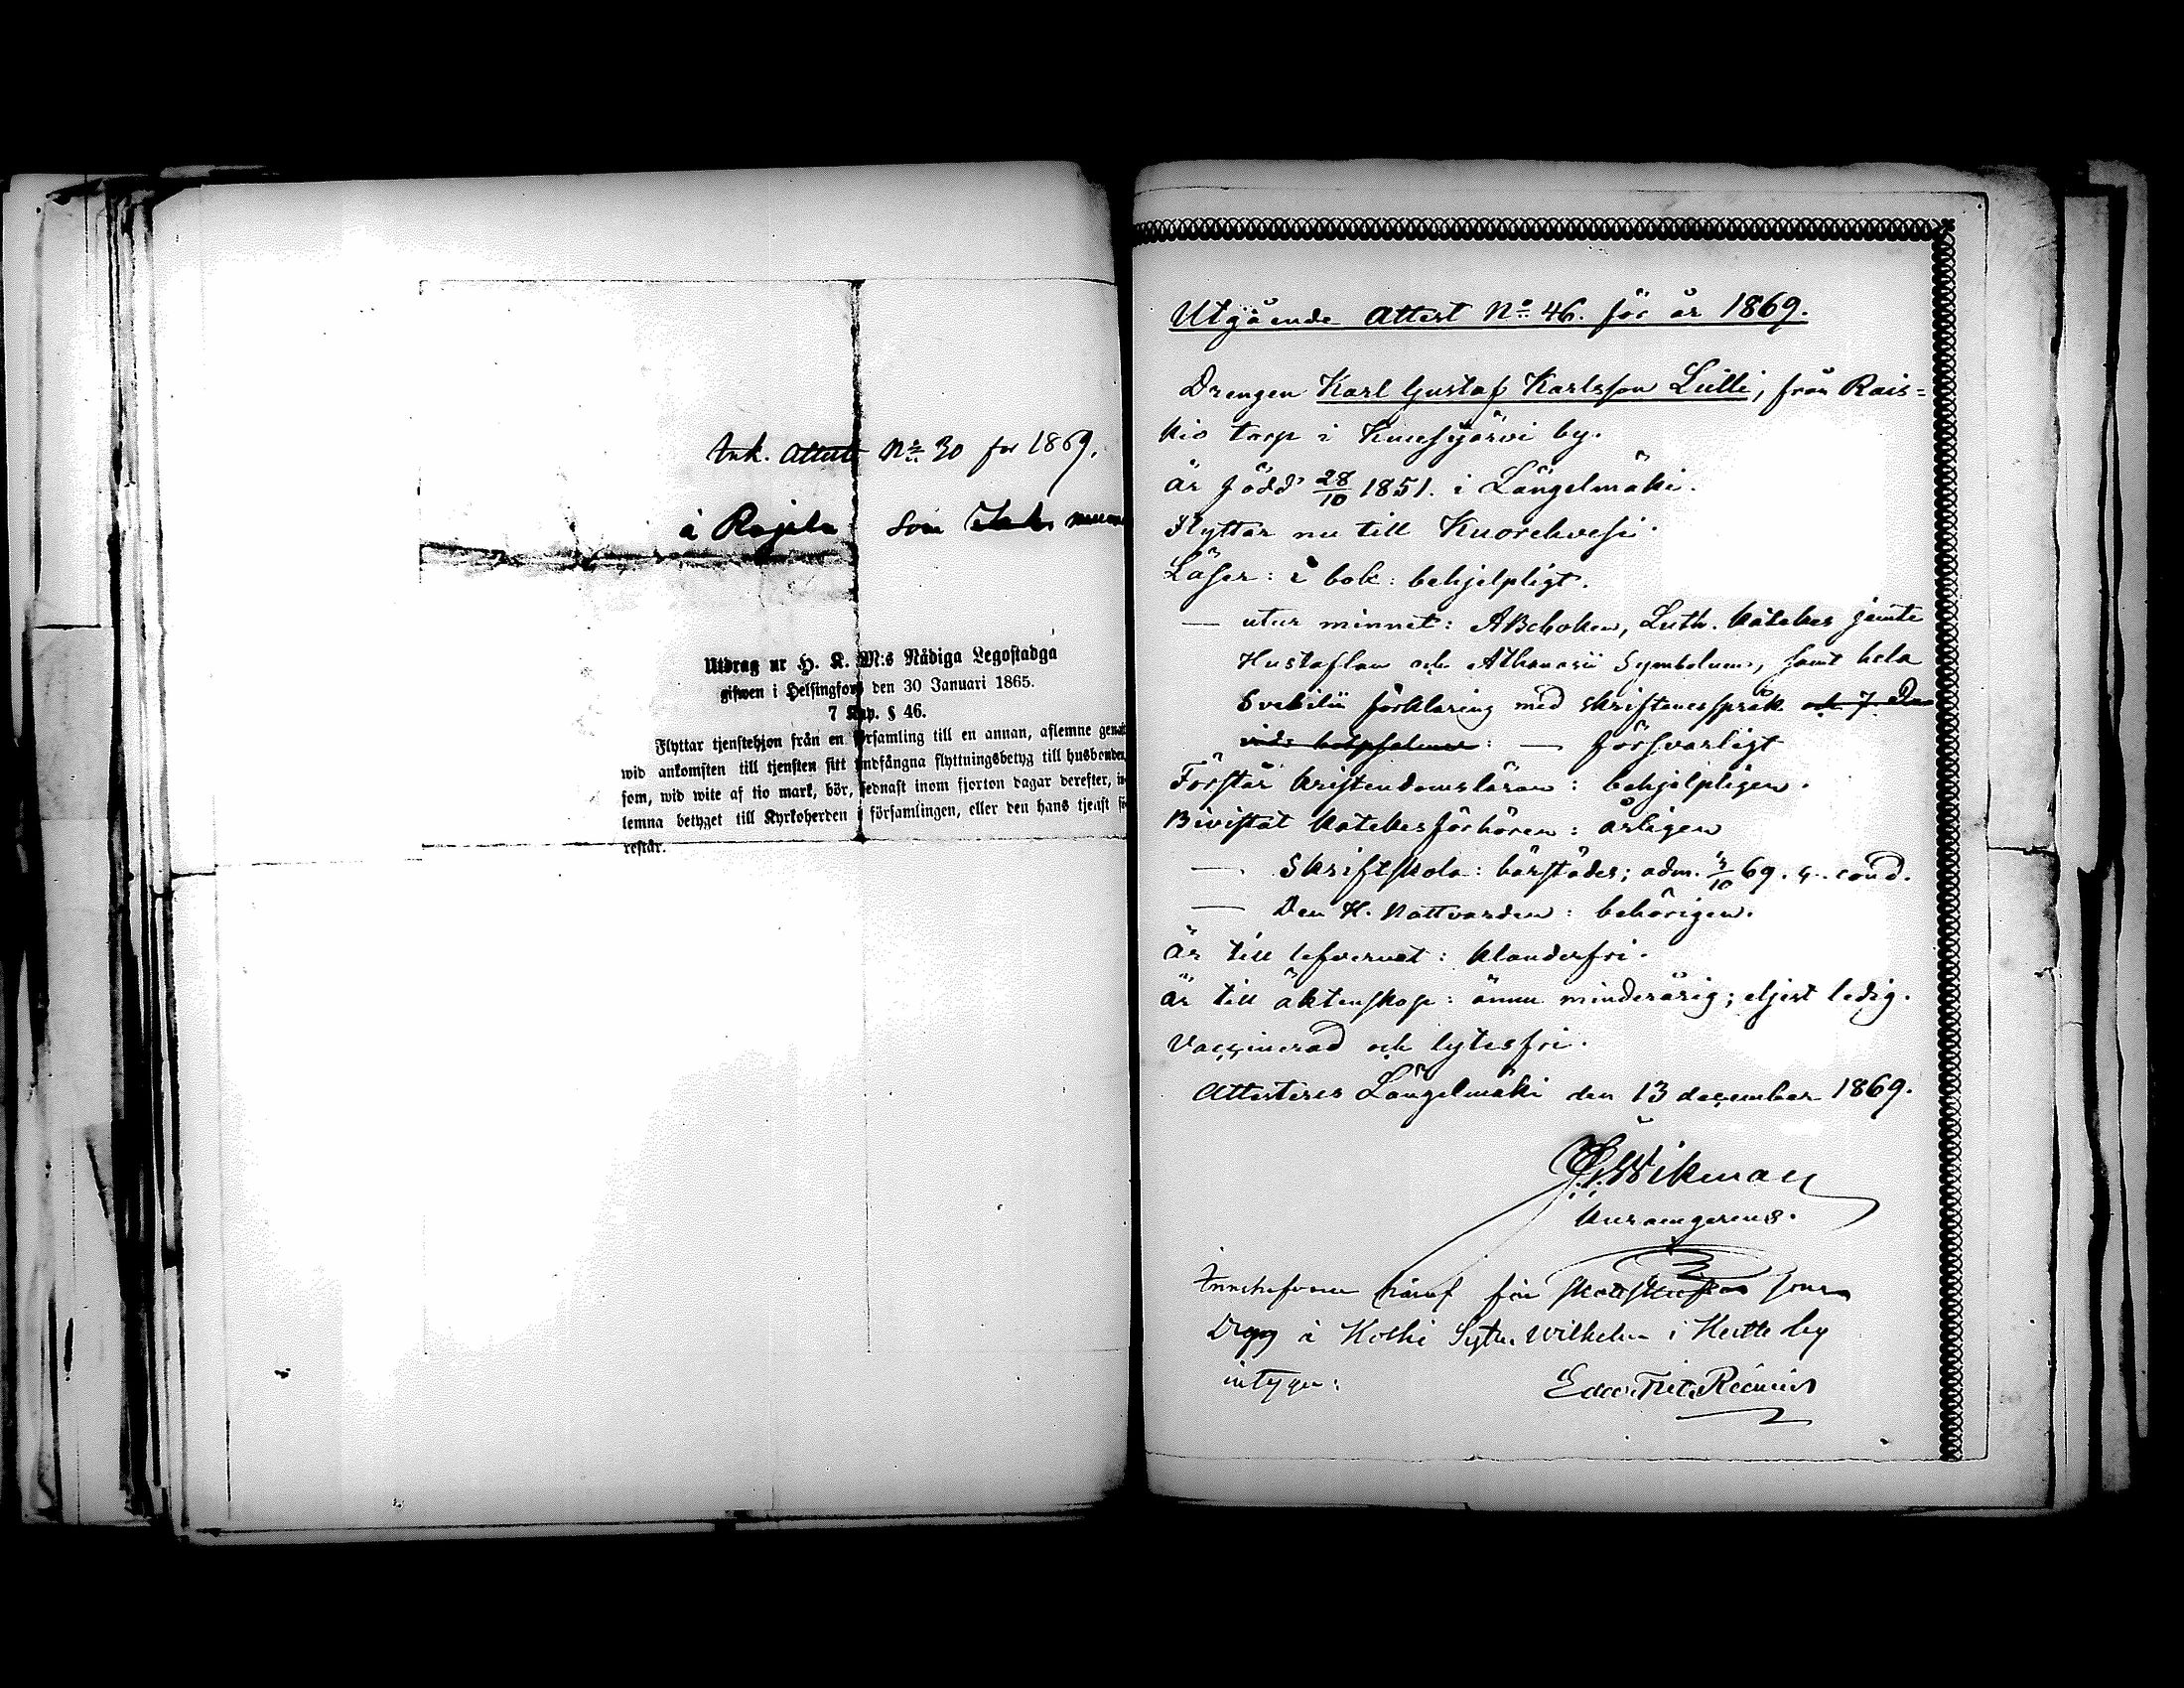 Ink. Attest No 30 for 1869.
å Rajala som
Utdrag ur H. K. M:s Nådiga Legostadga
gifwen i Helsingfors den 30 Januari 1865.
7 Kap. § 46.
Flyttar tjenstehjon från en församling till en annan, aflemne genast
wid ankomsten till tjensten sitt undfångna flyttningsbetyg till husbonden,
som, wid wite af tio mark, bör, sednast inom fjorton dagar derefter, in-
lemna betyget till Kyrkoherden i församlingen, eller den hans tjenst
restår.
Utgående Attest No 46. för år 1869.
Drengen Karl Gustaf Karlsson Lulli, från Rais=
kio torp i by.
är född 28/10 1851. i Längelmäki.
Flyttar nu till Kuorehvesi.
Läser: i bok: behjelpligt.
— utur minnet: ABCboken, Luth. katekes jemte
Hustaflan och Athanasii Symbolum, samt hela
Svebilii förklaring med skriftenes språk och 7. Da-
vids botpsalmer: — försvarligt
Förstår kristendomsläran: behjelpligen.
Bivistat katekesförhören: årligen
— Skriftskola: härstädes; adm. 3/10 69. c. cond.
— Den H. Nattvarden: behörigen.
Är till lefvernet: klanderfri.
Är till äktenskap: ännu minderårig; eljest ledig.
Vaccinerad och lytesfri.
Attesteres Längelmäki den 13 december 1869.
Wikman
Innehafvaren häraf får som
Dreng å Koski Sytn. Wilhelm i by
intygar: